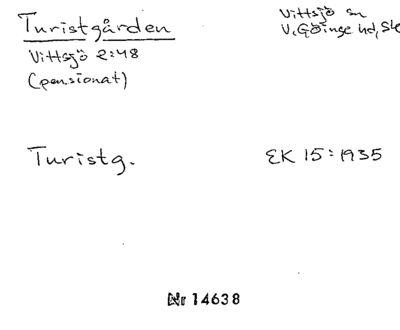 Turistgården
Vittsjö sn
Vittsjö 2:48
V. Göinge hd, Sk
(pensionat)
Turistg.
EK 15:1935
Nr 14638